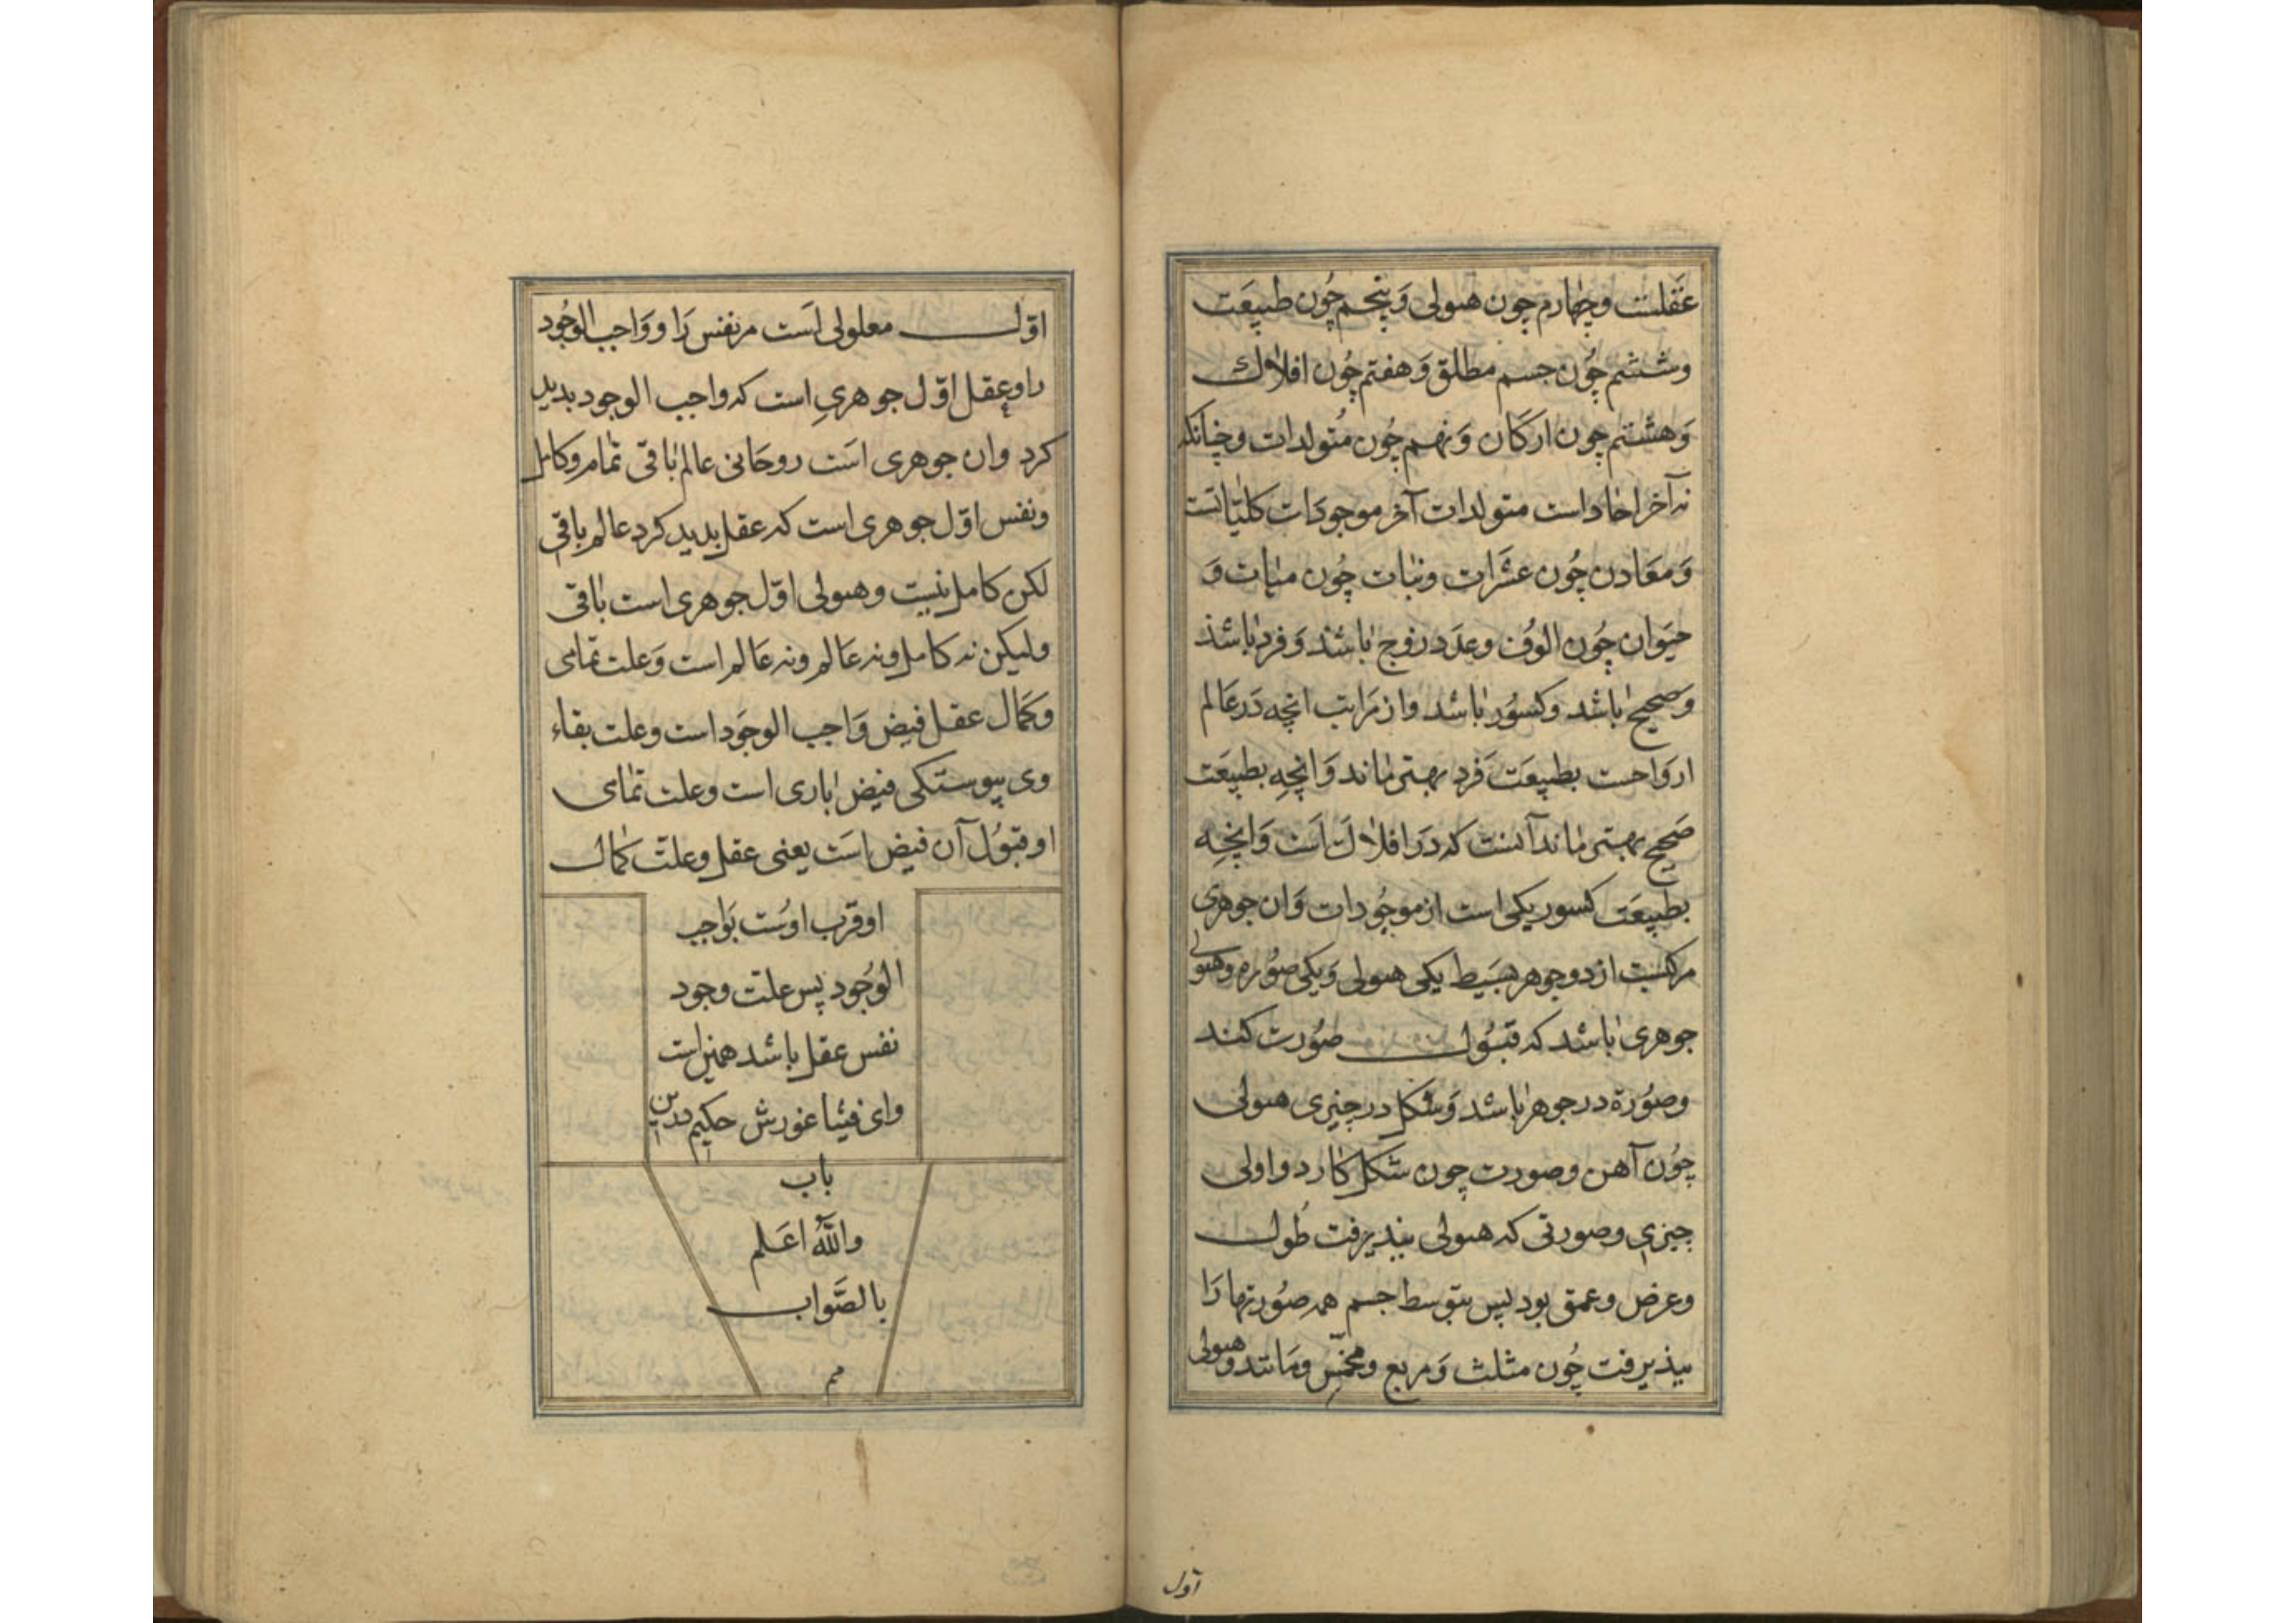 عقلست وچهارم چون هیولی وَپنجم چُون طبیعَت
وششم چُون جسم مطلق وَهفتم چُون افلاك
وَهشتم چون ارکَان وَنهم چُون مُتولدات وچنانکه
نه آخر احاد است متولدات آخر موجودَات کلیّاتست
وَمعَادن چُون عشَرات ونبات چُون مئات وَ
حیَوان چُون الوُف وعدَد زوج باشد وَفرد باشد
وَصحیح باشد وکسُور باشد واز مَراتب انچه دَر عَالم
اروَاحست بطبیعَت فَرد بهتر ماند وَانچه بطبیعَت
صَحیح بهتر ماند آنست که دَر افلاك اَست وَانچه
بطبیعَت کسور یکی است از موجُودات وَان جوهری
مرکبست از دو جوهر بسَیط یکی هیولی وَیکی صوُره وهیولی
جوهری باشد که قبُول صوُرت کند
وصوُرة در جوهر باشد وَشکل در چیزی هیولی
چُون آهن وصورت چون شکل کارد واولی
چیزی وصورتی که هیولی بپذیرفت طُول
وعرض وعمق بود پس بتوسط جسم همه صوُرتها رَا
بپذیرفت چُون مثلث وَمربع ومخمّس ومَانند وهیولی
اوّل
اوّل معلولی اَست مر نفس رَا ووَاجب الوجُود
را وعقل اوّل جوهری است که واجب الوجود بدید
کرد وان جوهری اسَت روحَانی عالم باقی تمام وکامل
ونفس اوّل جوهری است که عقل بدید کرد عالم باقی
لکن کامل نیست وهیولی اوّل جوهری است باقی
ولیکن نه کامل ونه عَالم ونه عَالم است وَعلت تمامی
وَکمَال عقل فیض وَاجب الوجَود است وعلت بقاء
وی پیوستکی فیض باری است وعلت تمامی
او قبُول آن فیض اسَت یعنی عقل وعلت کمال
او قرب اوسُت بوَاجب
الوُجود پس علت وجود
نفس عقل باشد همین است
وای فیثاغورش حکیم درین
باب
واللّه اعَلم
بالصَّواب
مم